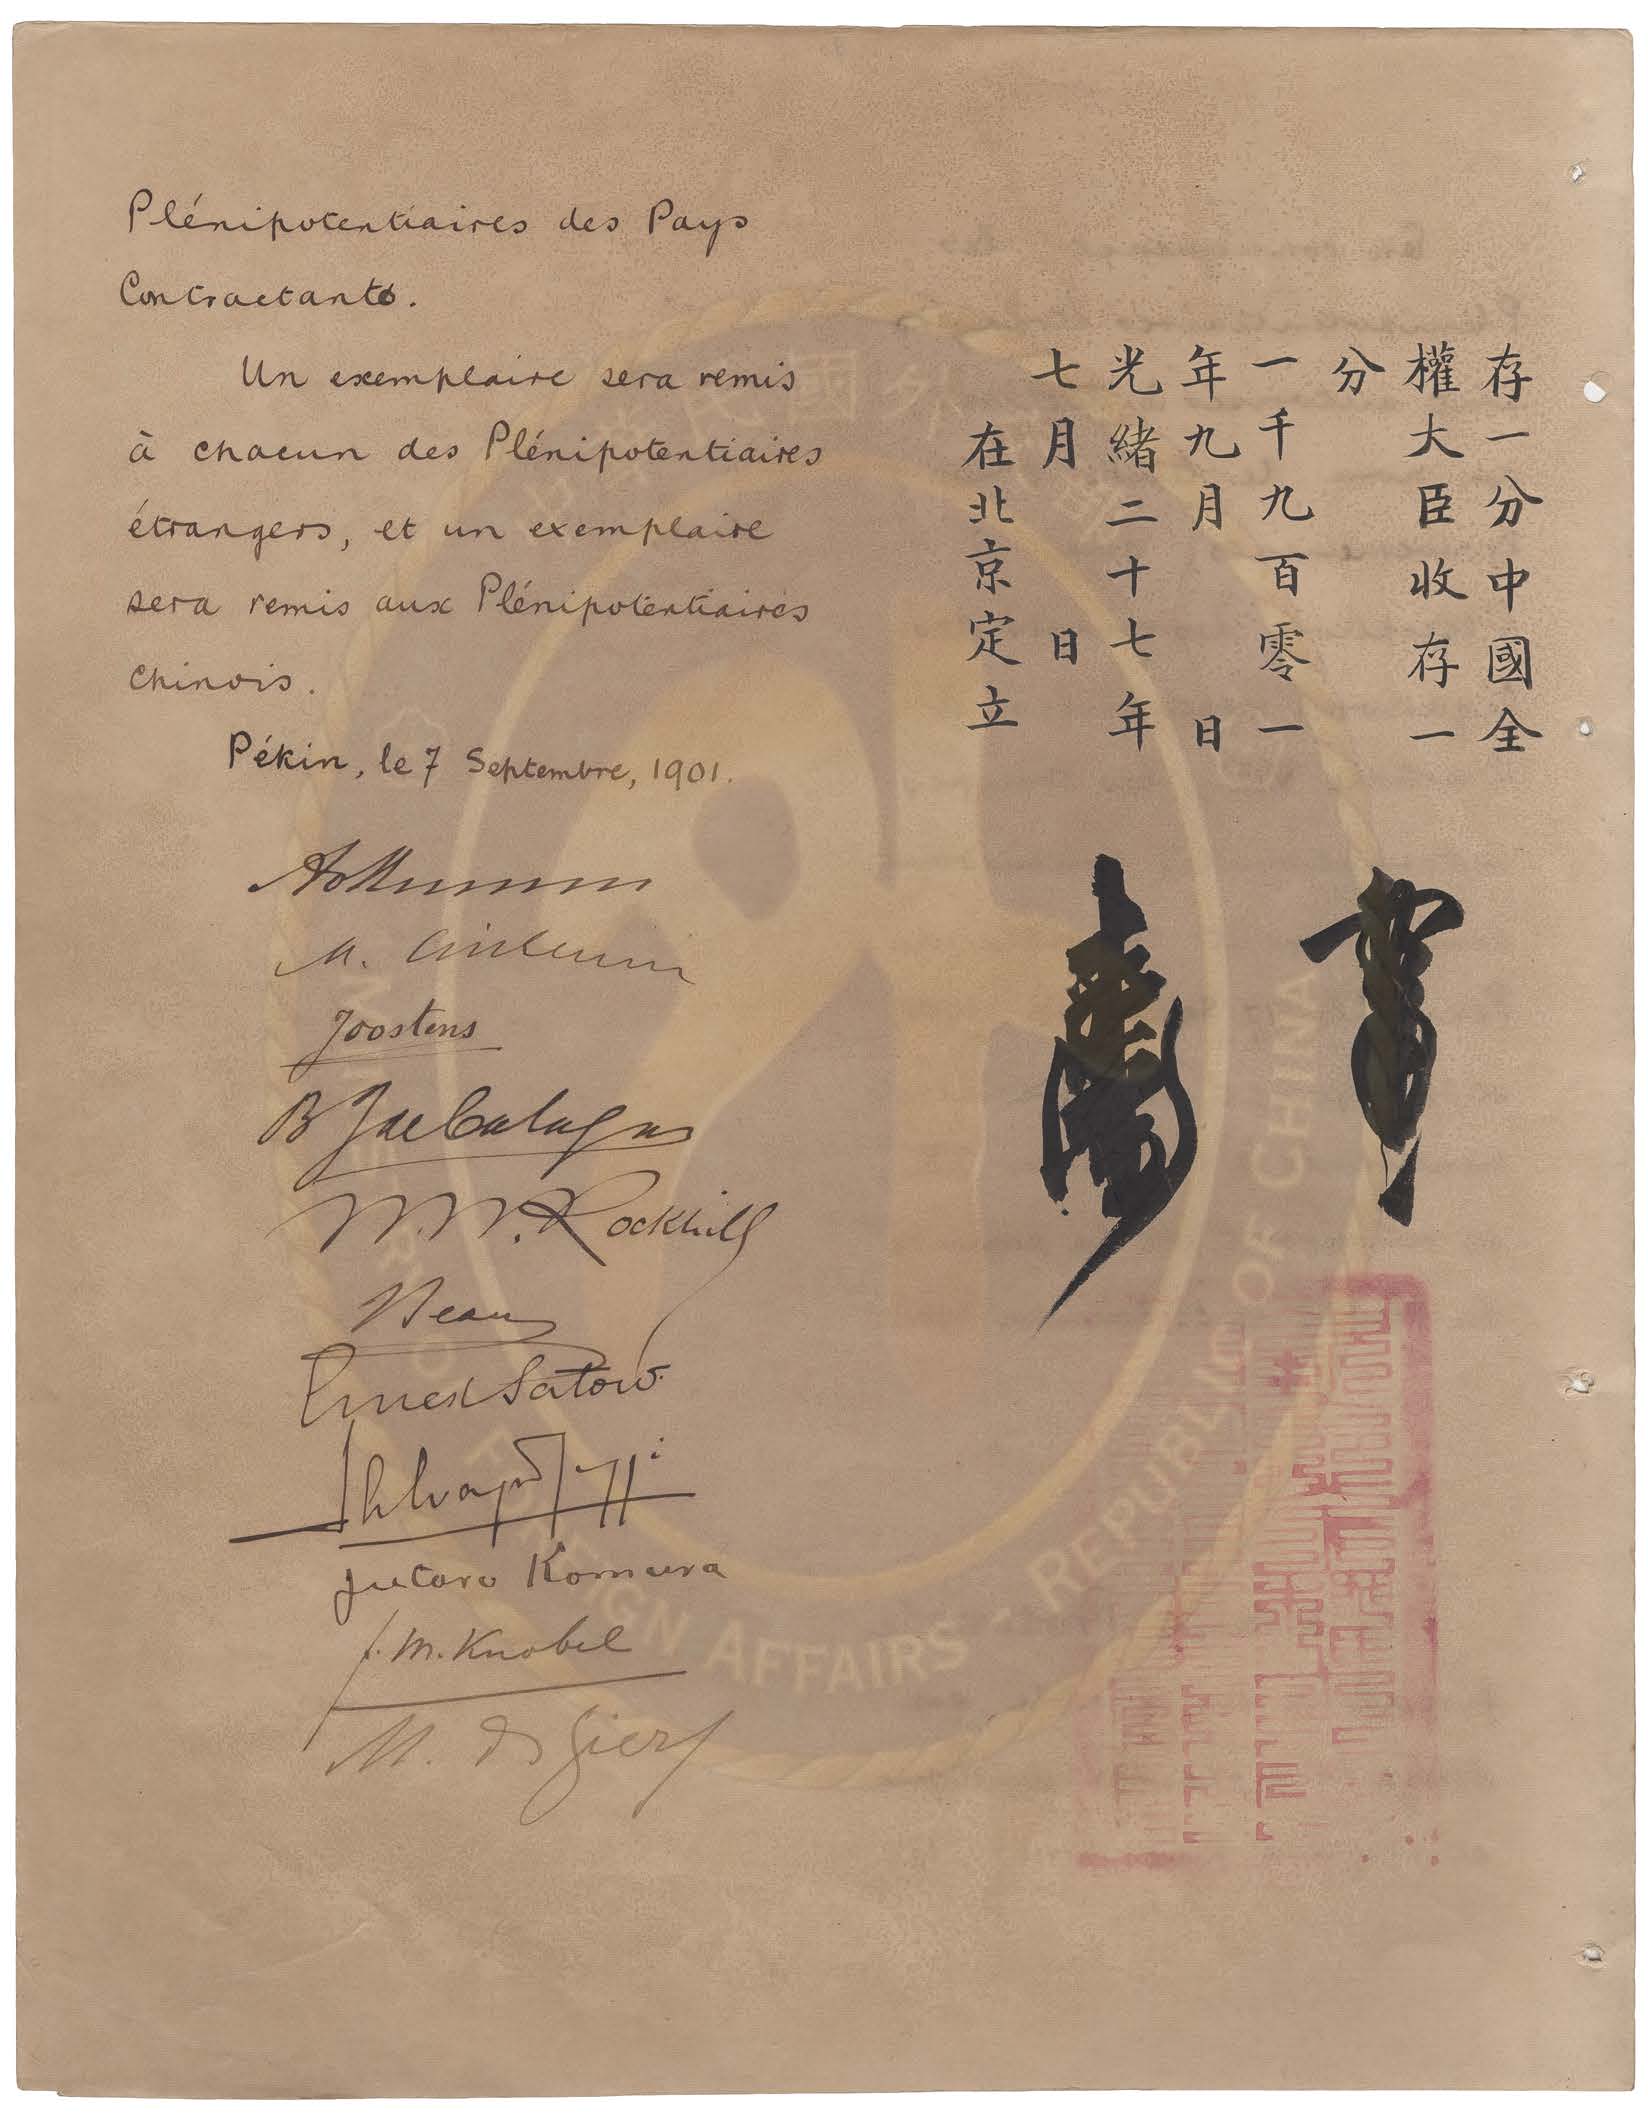 Plénipotentiaires des Pays
Contractants.
Un exemplaire sera remis
à chacun des Plénipotentiaires
étrangers, et un exemplaire
sera remis aux Plénipotentiaires
Chinois.
Pékin, le 7 Septembre, 1901.
Joostens
W. W. Rockhill
Beau
Ernest Satow
Jutaro Komura
F. M. Knobel
M. de Giers
存一分中國全
權大臣收存一
分
一千九百零一
年九月 日
光緒二十七年
七月 日
在北京定立
FOREIGN AFFAIRS - REPUBLIC OF CHINA